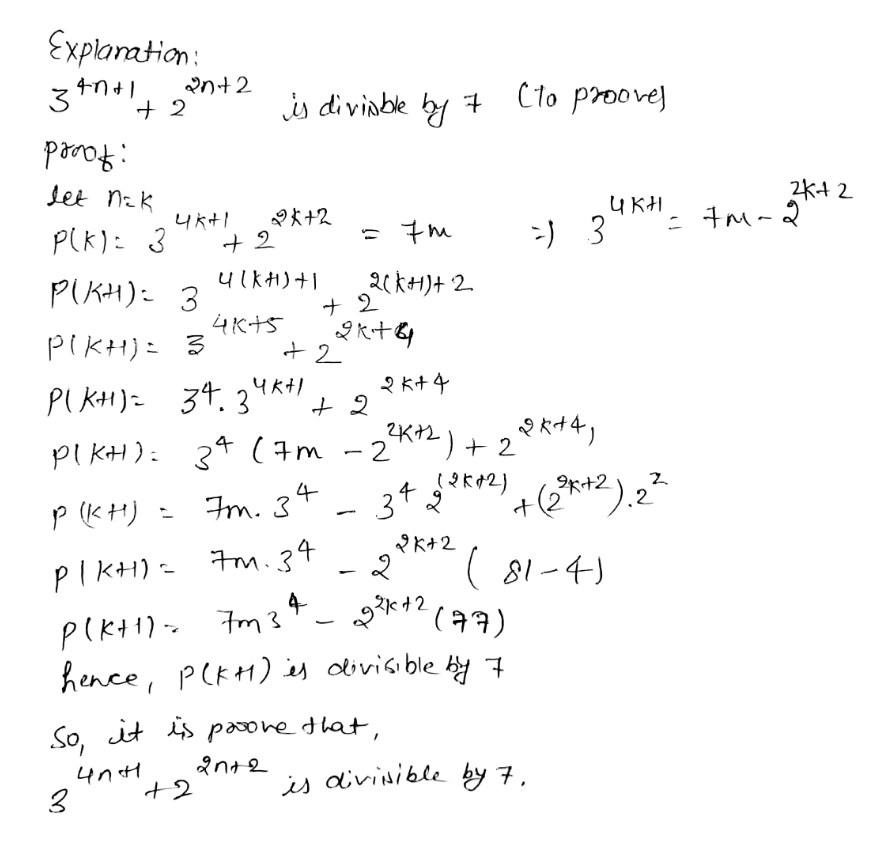 Explanation:
3^{4n+1} + 2^{2n+2} is divisble by 7 (to proove)
proof:
let n=k
P(k): 3^{4k+1} + 2^{2k+2} = 7m => 3^{4k+1} = 7m - 2^{2k+2}
P(k+1)= 3^{4(k+1)+1} + 2^{2(k+1)+2}
P(k+1)= 3^{4k+5} + 2^{2k+4}
P(k+1)= 3^4. 3^{4k+1} + 2^{2k+4}
P(k+1)= 3^4 (7m - 2^{2k+2}) + 2^{2k+4},
P(k+1) = 7m. 3^4 - 3^4 2^{(2k+2)} + (2^{2k+2}). 2^2
P(k+1) = 7m. 3^4 - 2^{2k+2} (81-4)
P(k+1) = 7m 3^4 - 2^{2k+2} (77)
hence, P(k+1) is divisible by 7
So, it is proove that,
3^{4n+1} + 2^{2n+2} is divisible by 7.